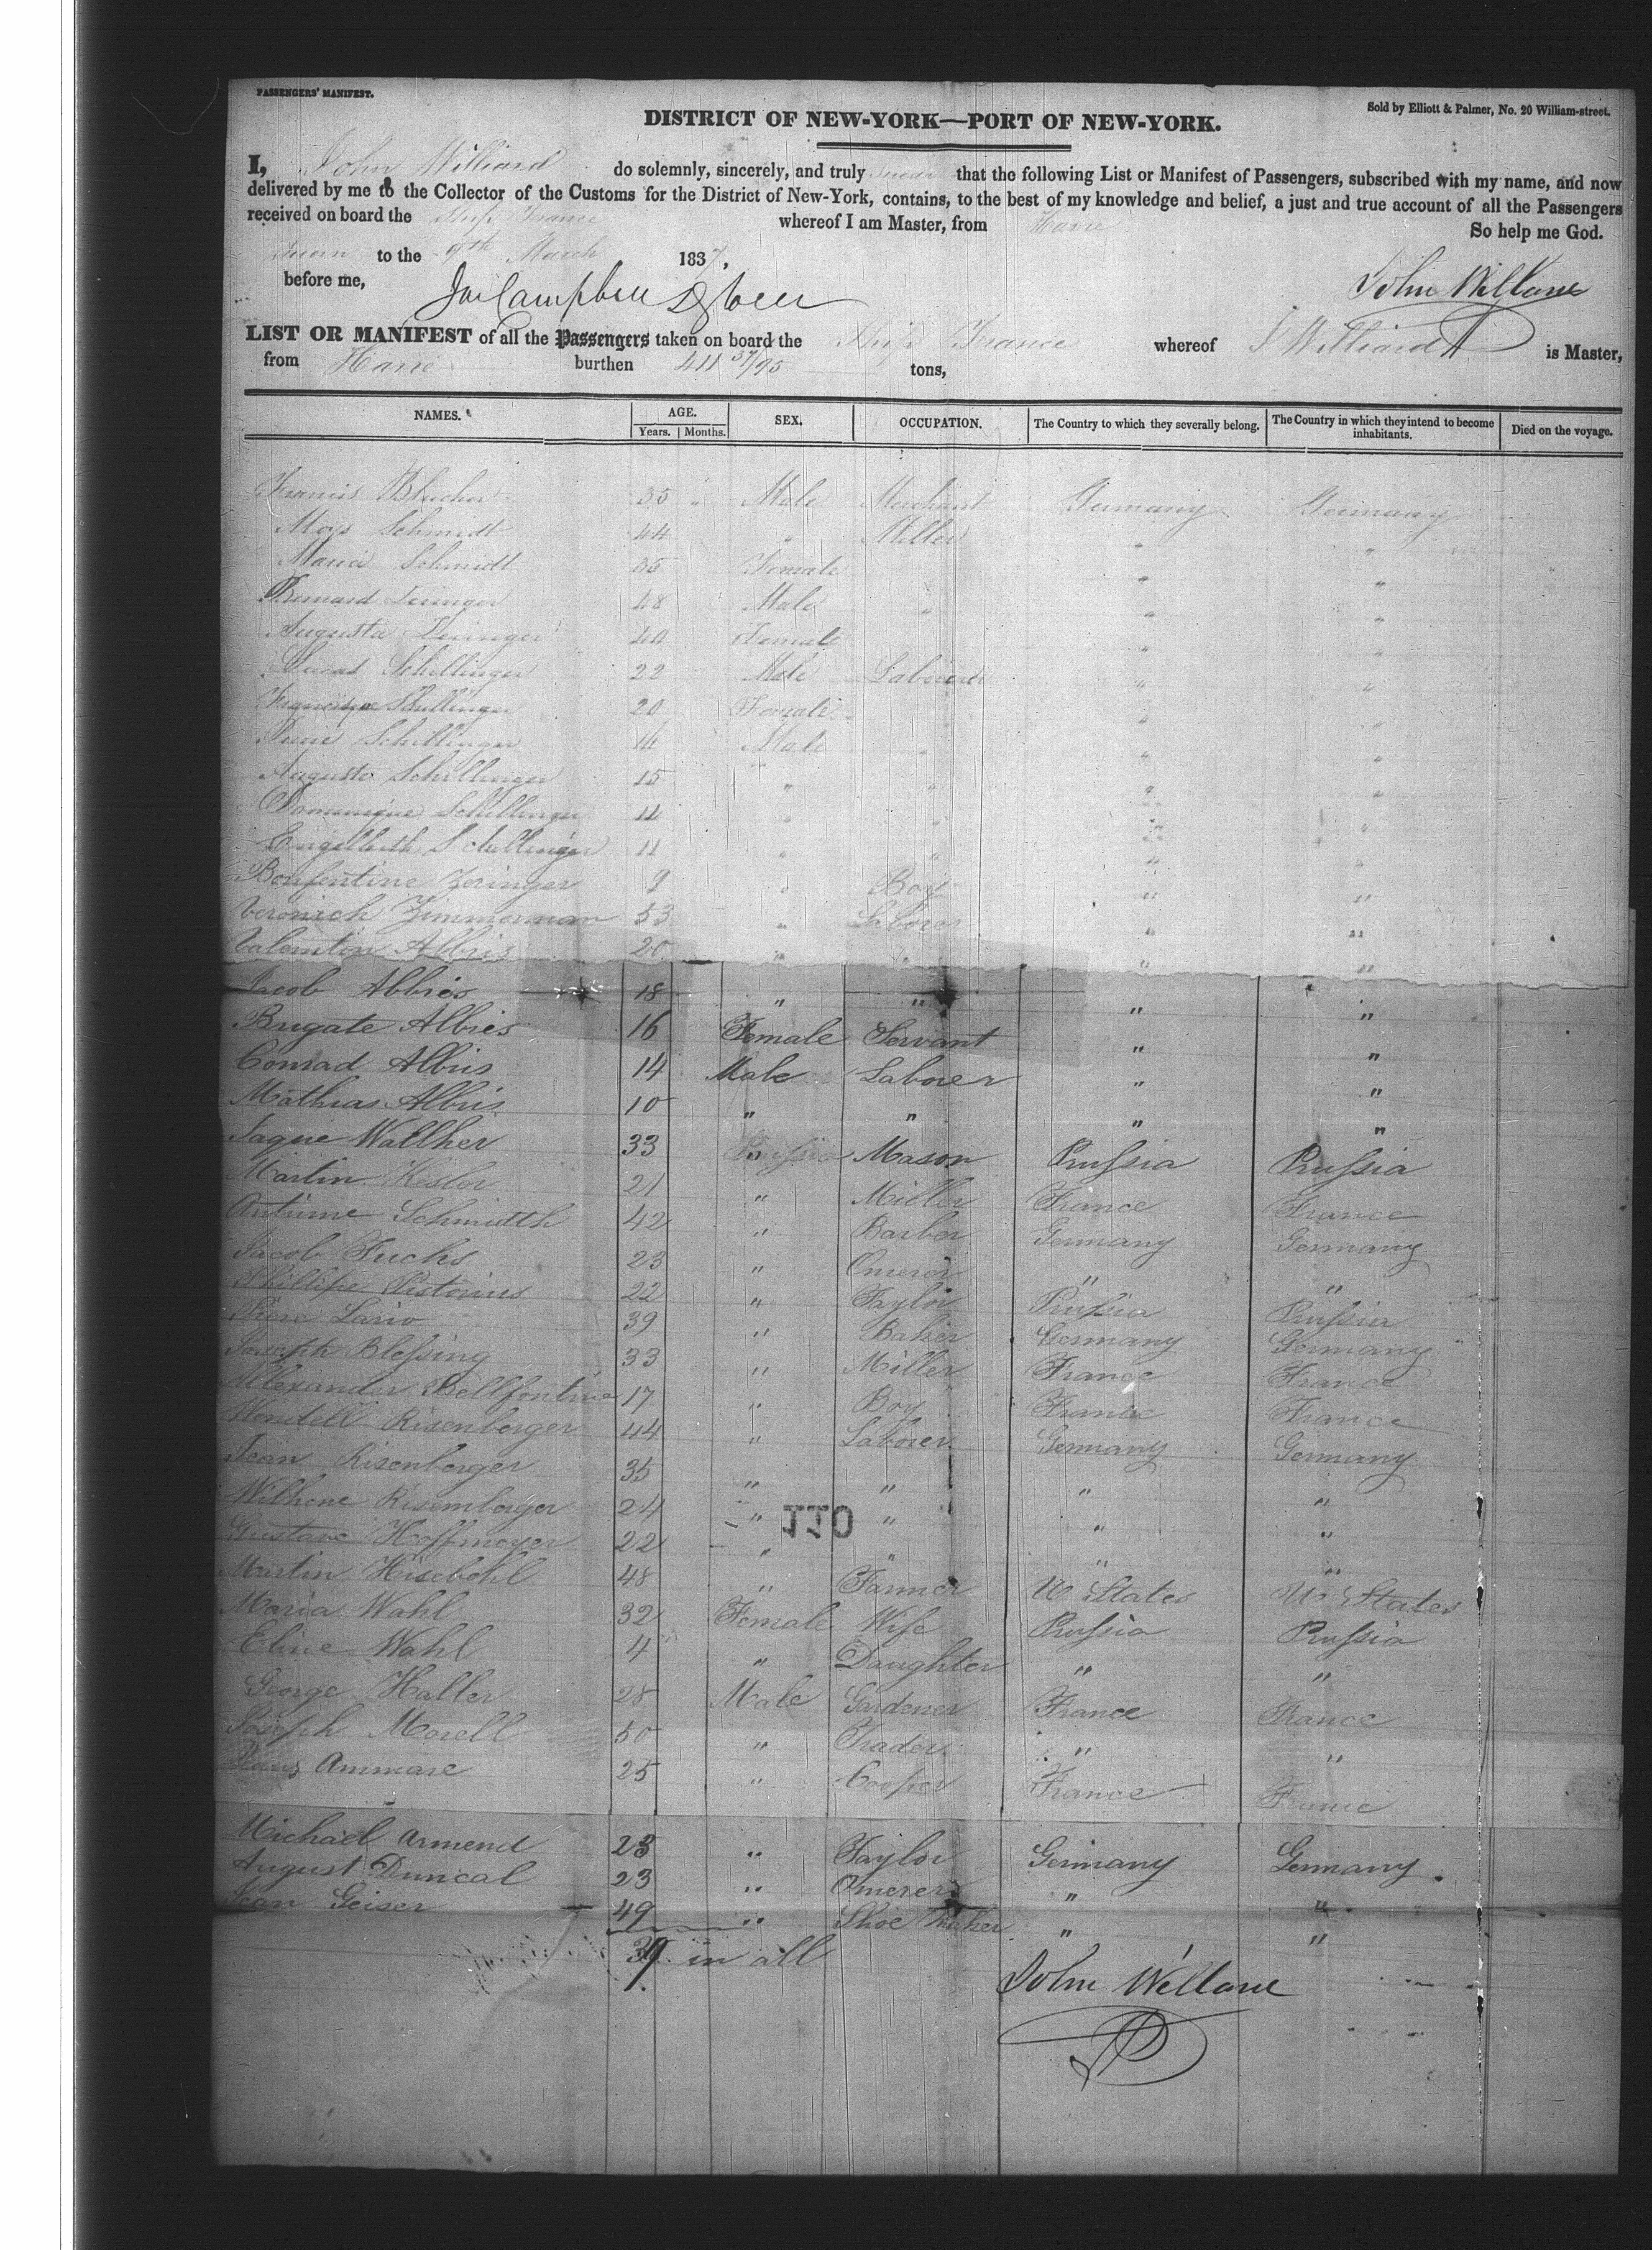 PASSENGERS' MANIFEST.
Sold by Elliott & Palmer, No. 20 William-street.
DISTRICT OF NEW-YORK—PORT OF NEW-YORK.
I, John Williard do solemnly, sincerely, and truly swear that the following List or Manifest of Passengers, subscribed with my name, and now
delivered by me to the Collector of the Customs for the District of New-York, contains, to the best of my knowledge and belief, a just and true account of all the Passengers
received on board the Ship France whereof I am Master, from Havre
So help me God.
Sworn to the 9th March 1837,
before me,
John Willard
LIST OR MANIFEST of all the Passengers taken on board the Ship France whereof J Williard is Master,
from Havre burthen 411 37/95 tons,
NAMES. AGE. SEX. OCCUPATION. The Country to which they severally belong. The Country in which they intend to become inhabitants. Died on the voyage.
Years. Months.
Francis Blucher 35 " Male Merchant Germany Germany
Aloys Schmidt 44 " Miller " "
Maria Schmidt 35 Female " "
Bernard 48 Male " " "
Augusta 40 Female " "
Lucas Schillinger 22 Male Laborer " "
Schillinger 20 Female " "
Schillinger Male " " "
Auguste Schillinger 15 " " " "
Dominique Schillinger 14 " " " "
Engelbeth Schillinger 11 " " " "
Bonfentine Zeringer 9 " Boy " "
Veronich Zimmerman 53 " Laborer " "
Valentin Albris 20 " " " "
Jacob Albries 18 " " " "
Brigate Albies 16 Female Servant " "
Conrad Albris 14 Male Laborer " "
Mathias Albris 10 " " " "
Jaque Wallher 33 " Mason Prussia Prussia
Martin Keslor 21 " Miller France France
Antime Schmidth 42 " Barber Germany Germany
Jacob Fuchs 23 " " "
Phillipe Pistorius 22 " Taylor Prussia Prussia
Piere Lario 39 " Baker Germany Germany
Joseph Blessing 33 " Miller France France
Alexander Bellfontine 17 " Boy France France
Wendell Risenberger 44 " Laborer Germany Germany
Jean Risenberger 35 " " " "
Wilhene Risemberger 24 " " " "
110
Gustave Hoffmeyer 22 " " " "
Martin Hisebohl 48 " Farmer U States U States
Maria Wahl 32 Female Wife Prussia Prussia
Eline Wahl 4 " Daughter " "
George Haller 28 Male Gardener France France
Joseph Morell 50 " Trader " "
Ammare 25 " Cooper France France
Michael Armend 23 " Taylor Germany Germany
August Duncal 23 " " "
Jean Geiser 49 " Shoe Maker " "
39 in all
John Willard